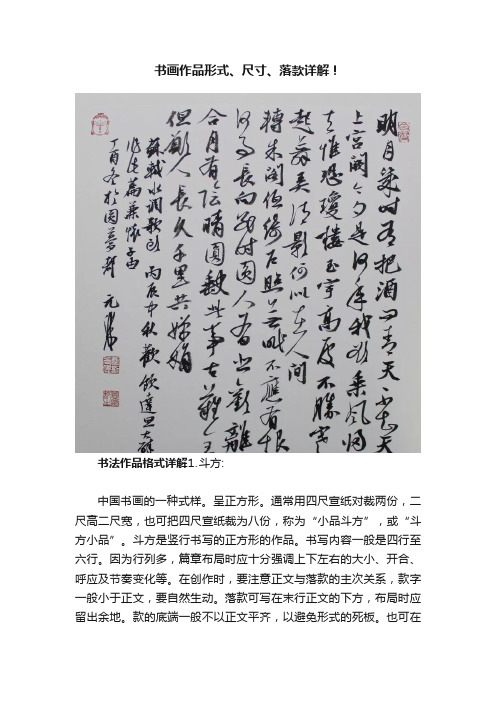 书画作品形式、尺寸、落款详解！
明月幾时有把酒问青天不知天
上宫阙今夕是何年我欲乘风归
去惟恐瓊楼玉宇高处不胜寒
起舞弄清影何似在人间
转朱阁低绮户照无眠不應有恨
何事长向别时圆人有悲欢離
合月有阴晴圆缺此事古难全
但願人長久千里共嬋娟
蘇軾水调歌头 丙辰中秋歡飲達旦大醉
作此篇兼懷子由
丁酉冬於园梦轩 元
书法作品格式详解1.斗方:
中国书画的一种式样。呈正方形。通常用四尺宣纸对裁两份，二
尺高二尺宽，也可把四尺宣纸裁为八份，称为“小品斗方”，或“斗
方小品”。斗方是竖行书写的正方形的作品。书写内容一般是四行至
六行。因为行列多，篇章布局时应十分强调上下左右的大小、开合、
呼应及节奏变化等。在创作时，要注意正文与落款的主次关系，款字
一般小于正文，要自然生动。落款可写在末行正文的下方，布局时应
留出余地。款的底端一般不以正文平齐，以避免形式的死板。也可在